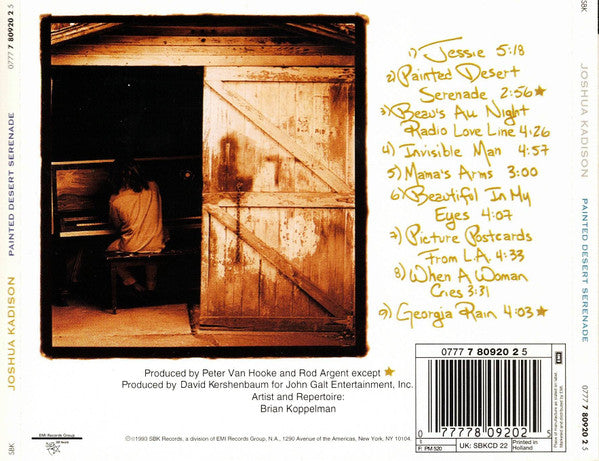 SBK
0777 7 80920 2 5
PAINTED DESERT SERENADE
JOSHUA KADISON
SBK
1) Jessie 5:18
2) Painted Desert
Serenade 2:56★
3) Beau's All Night
Radio Love Line 4:26
4) Invisible Man 4:57
5) Mama's Arms 3:00
6) Beautiful In My
Eyes 4:07
7) Picture Postcards
From L.A. 4:33
8) When A Woman
Cries 3:31
9) Georgia Rain 4:03★
Produced by Peter Van Hooke and Rod Argent except ★
Produced by David Kershenbaum for John Galt Entertainment, Inc.
Artist and Repertoire:
Brian Koppelman
EMI Records Group
℗©1993 SBK Records, a division of EMI Records Group, N.A., 1290 Avenue of the Americas, New York, NY 10104.
0777 7 80920 2 5
0 77778 09202 5
F: PM 520
UK: SBKCD 22
Printed in
Holland
EMI
SBK
JOSHUA KADISON
PAINTED DESERT SERENADE
0777 7 80920 2 5